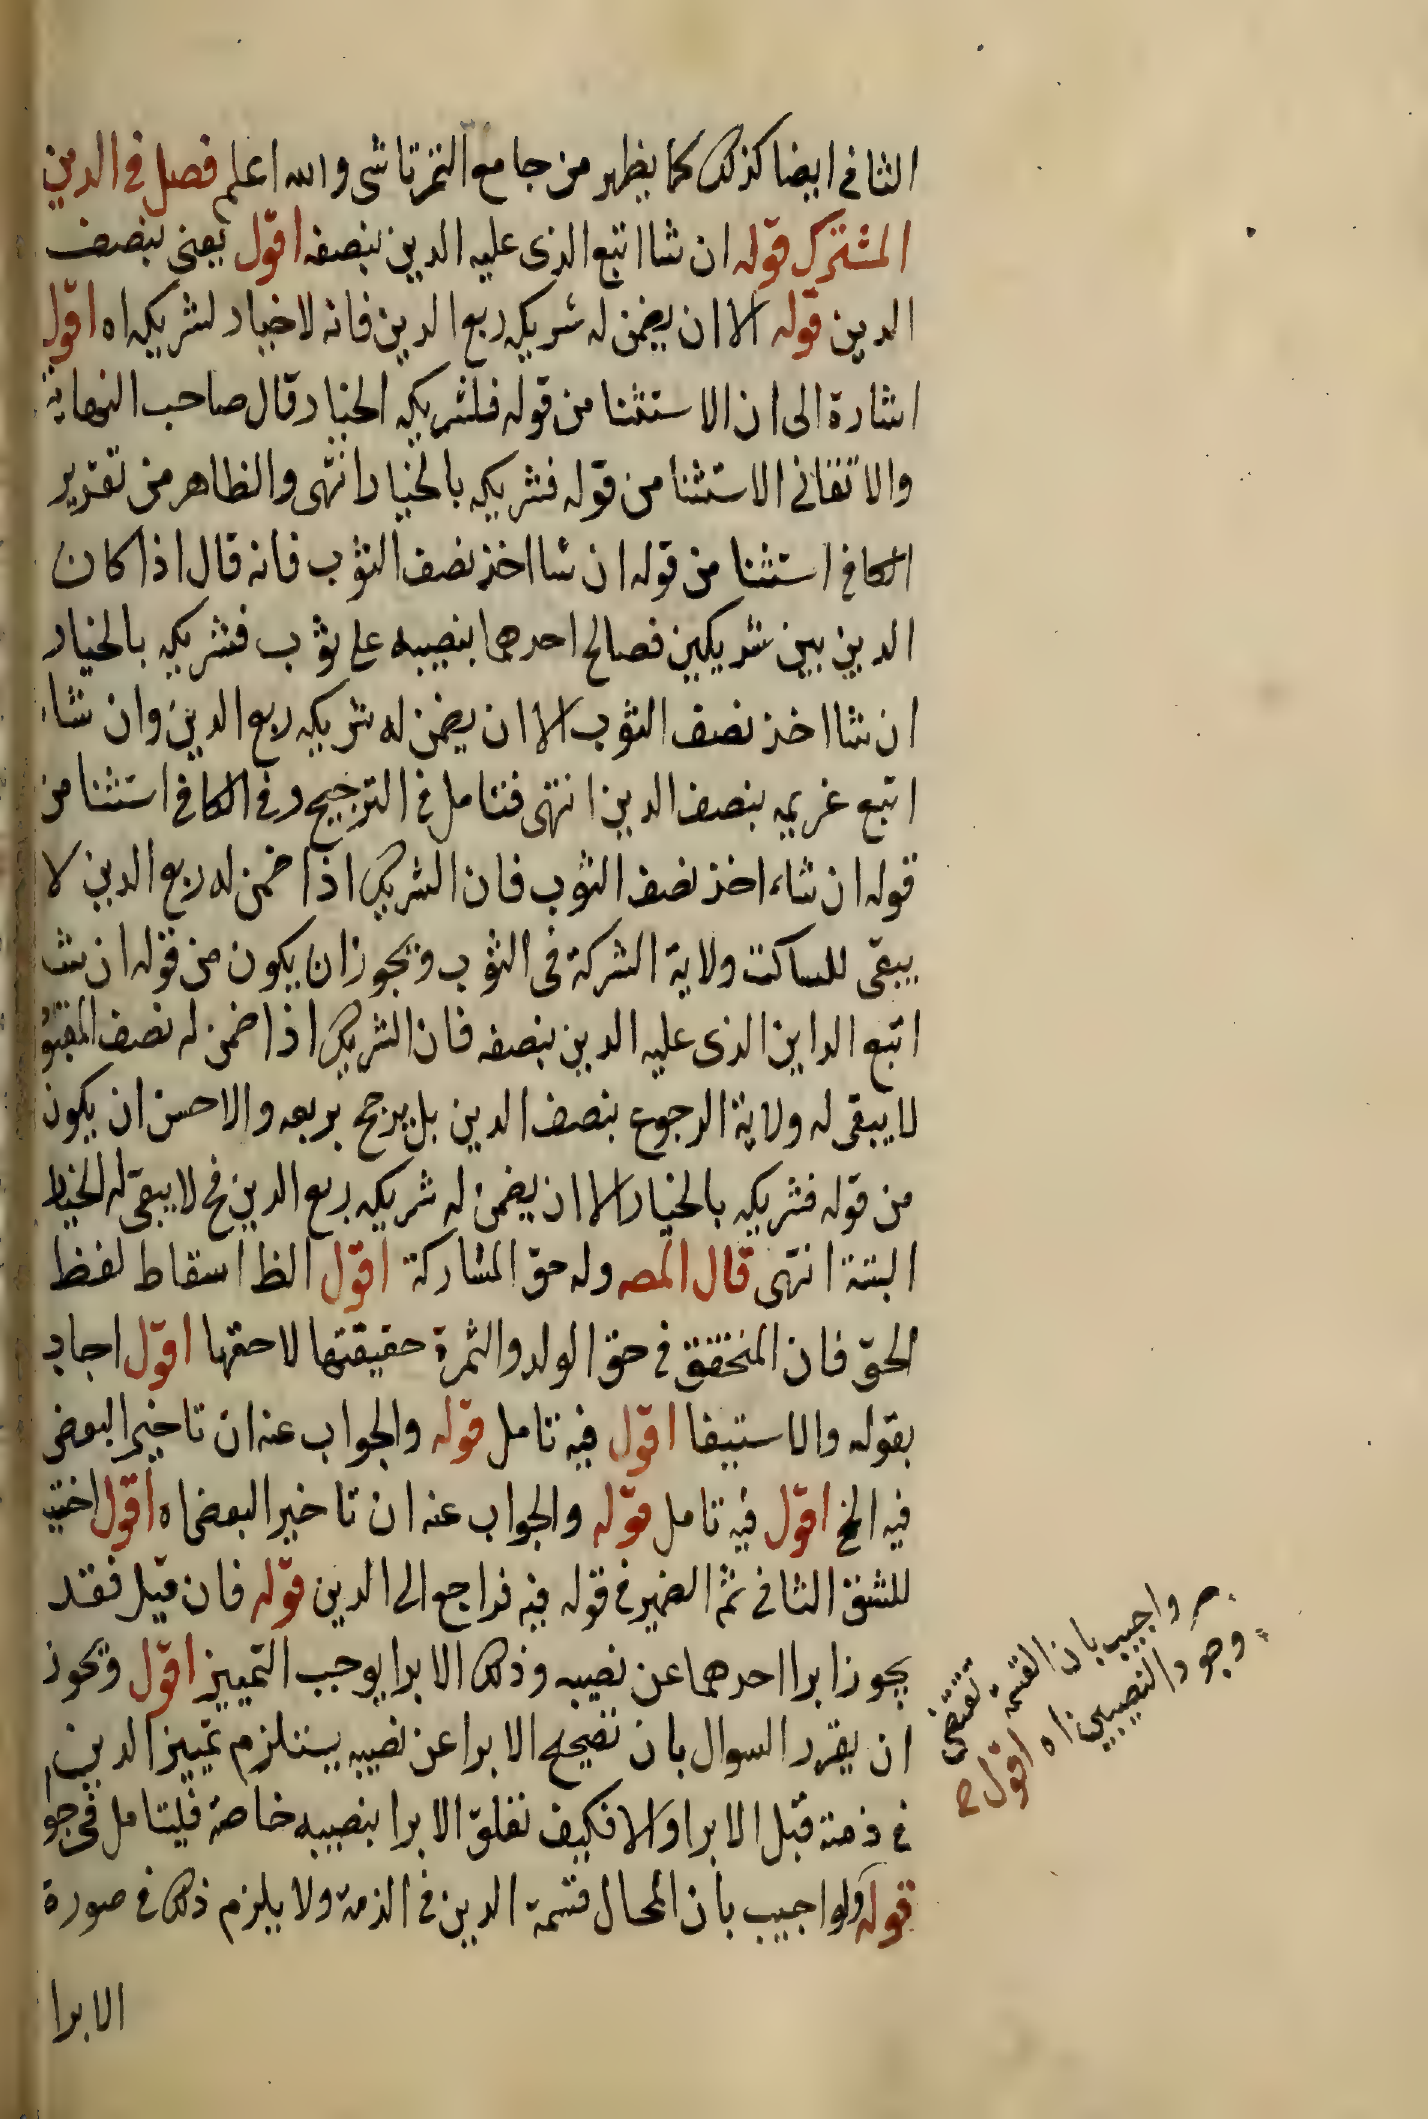 الثانى ايضا كذلك كما يظهر من جامع التمرتاشى والله اعلم فصل فى الدين
المشترك قوله ان شا اتبع الذى عليه الدين بنصفه اقول يعنى بنصف
الدين قوله الا ان يضمن له شريكه ربع الدين فانه لا خيار لشريكه اه اقول
اشارة الى ان الاستثنا من قوله فلشريكه الخيار قال صاحب النهاية
والاتقانى الاستثنا من قوله فشريكه بالخيار انتهى والظاهر من تقدير
الكافى استثنا من قوله ان شا اخذ نصف الثوب فانه قال اذا كان
الدين بين شريكين فصالح احدهما بنصيبه على ثوب فشريكه بالخيار
ان شا اخذ نصف الثوب الا ان يضمن له شريكه ربع الدين وان شاء
اتبع غريمه بنصف الدين انتهى فتامل فى الترجيح وفى الكافى استثنا من
قوله ان شاء اخذ نصف الثوب فان الشريك اذا ضمن له ربع الدين لا
يبقى للساكت ولاية الشركة فى الثوب ويجوز ان يكون من قوله ان شا
اتبع الداين الذى عليه الدين بنصفه فان الشريك اذا ضمن له نصف المقبو
لا يبقى له ولاية الرجوع بنصف الدين بل يرجح بربعه والاحسن ان يكون
من قوله فشريكه بالخيار الا ان يضمن له شريكه ربع الدين فح لا يبقى له الخيار
البتة انتهى قال المصه وله حق المشاركة اقول الظ اسقاط لفظ
الحق فان المتحقق فى حق الولد والثمرة حقيقتها لا حقها اقول اجاب
بقوله والاستيفا اقول فيه تامل قوله والجواب عنه ان تاخير البعض
فيه الخ اقول فيه تامل قوله والجواب عنه ان تاخير البعض اه اقول اختيا
للشق الثانى ثم الضمير فى قوله فيه راجع الى الدين قوله فان قيل فقد
يجوز ابرا احدهما عن نصيبه وذلك الابرا يوجب التمييز اقول ويجوز
ان يقرر السوال بان تصحيح الابرا عن نصيبه يستلزم تمييز الدين
فى ذمته قبل الابرا والا فكيف تعلق الابرا بنصيبه خاصة فليتامل فى جو
قوله ولو اجيب بان المحال قسمة الدين فى الذمة ولا يلزم ذلك فى صورة
الابرا
واجيب بان القسمة تقتضى
وجود النصيبين اه اقول